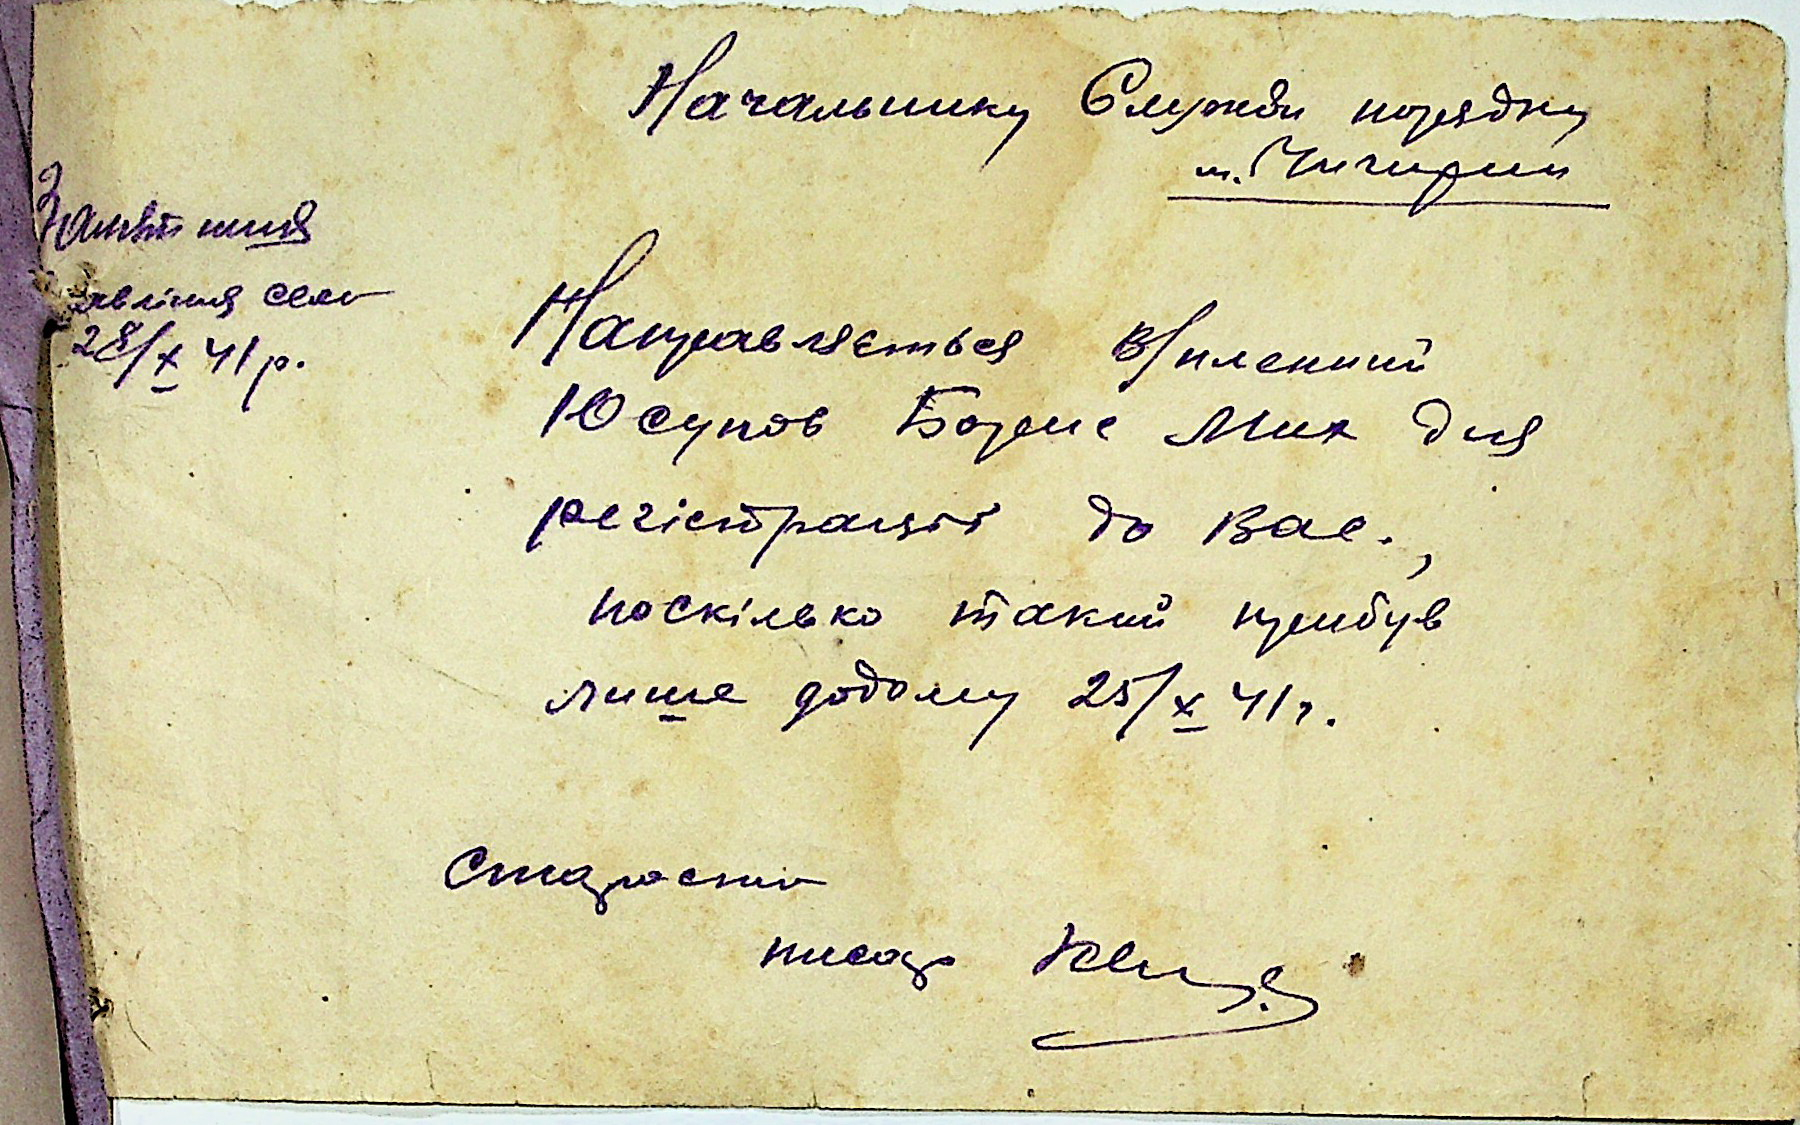 Начальнику Служби порядку
м. Чигирин
28/X 41 р.
Направляється в/пленний
Юсупов Борис Мих для
регістрації до Вас.,
поскілько такий прибув
лише додому 25/X 41 г.
Староста
писар